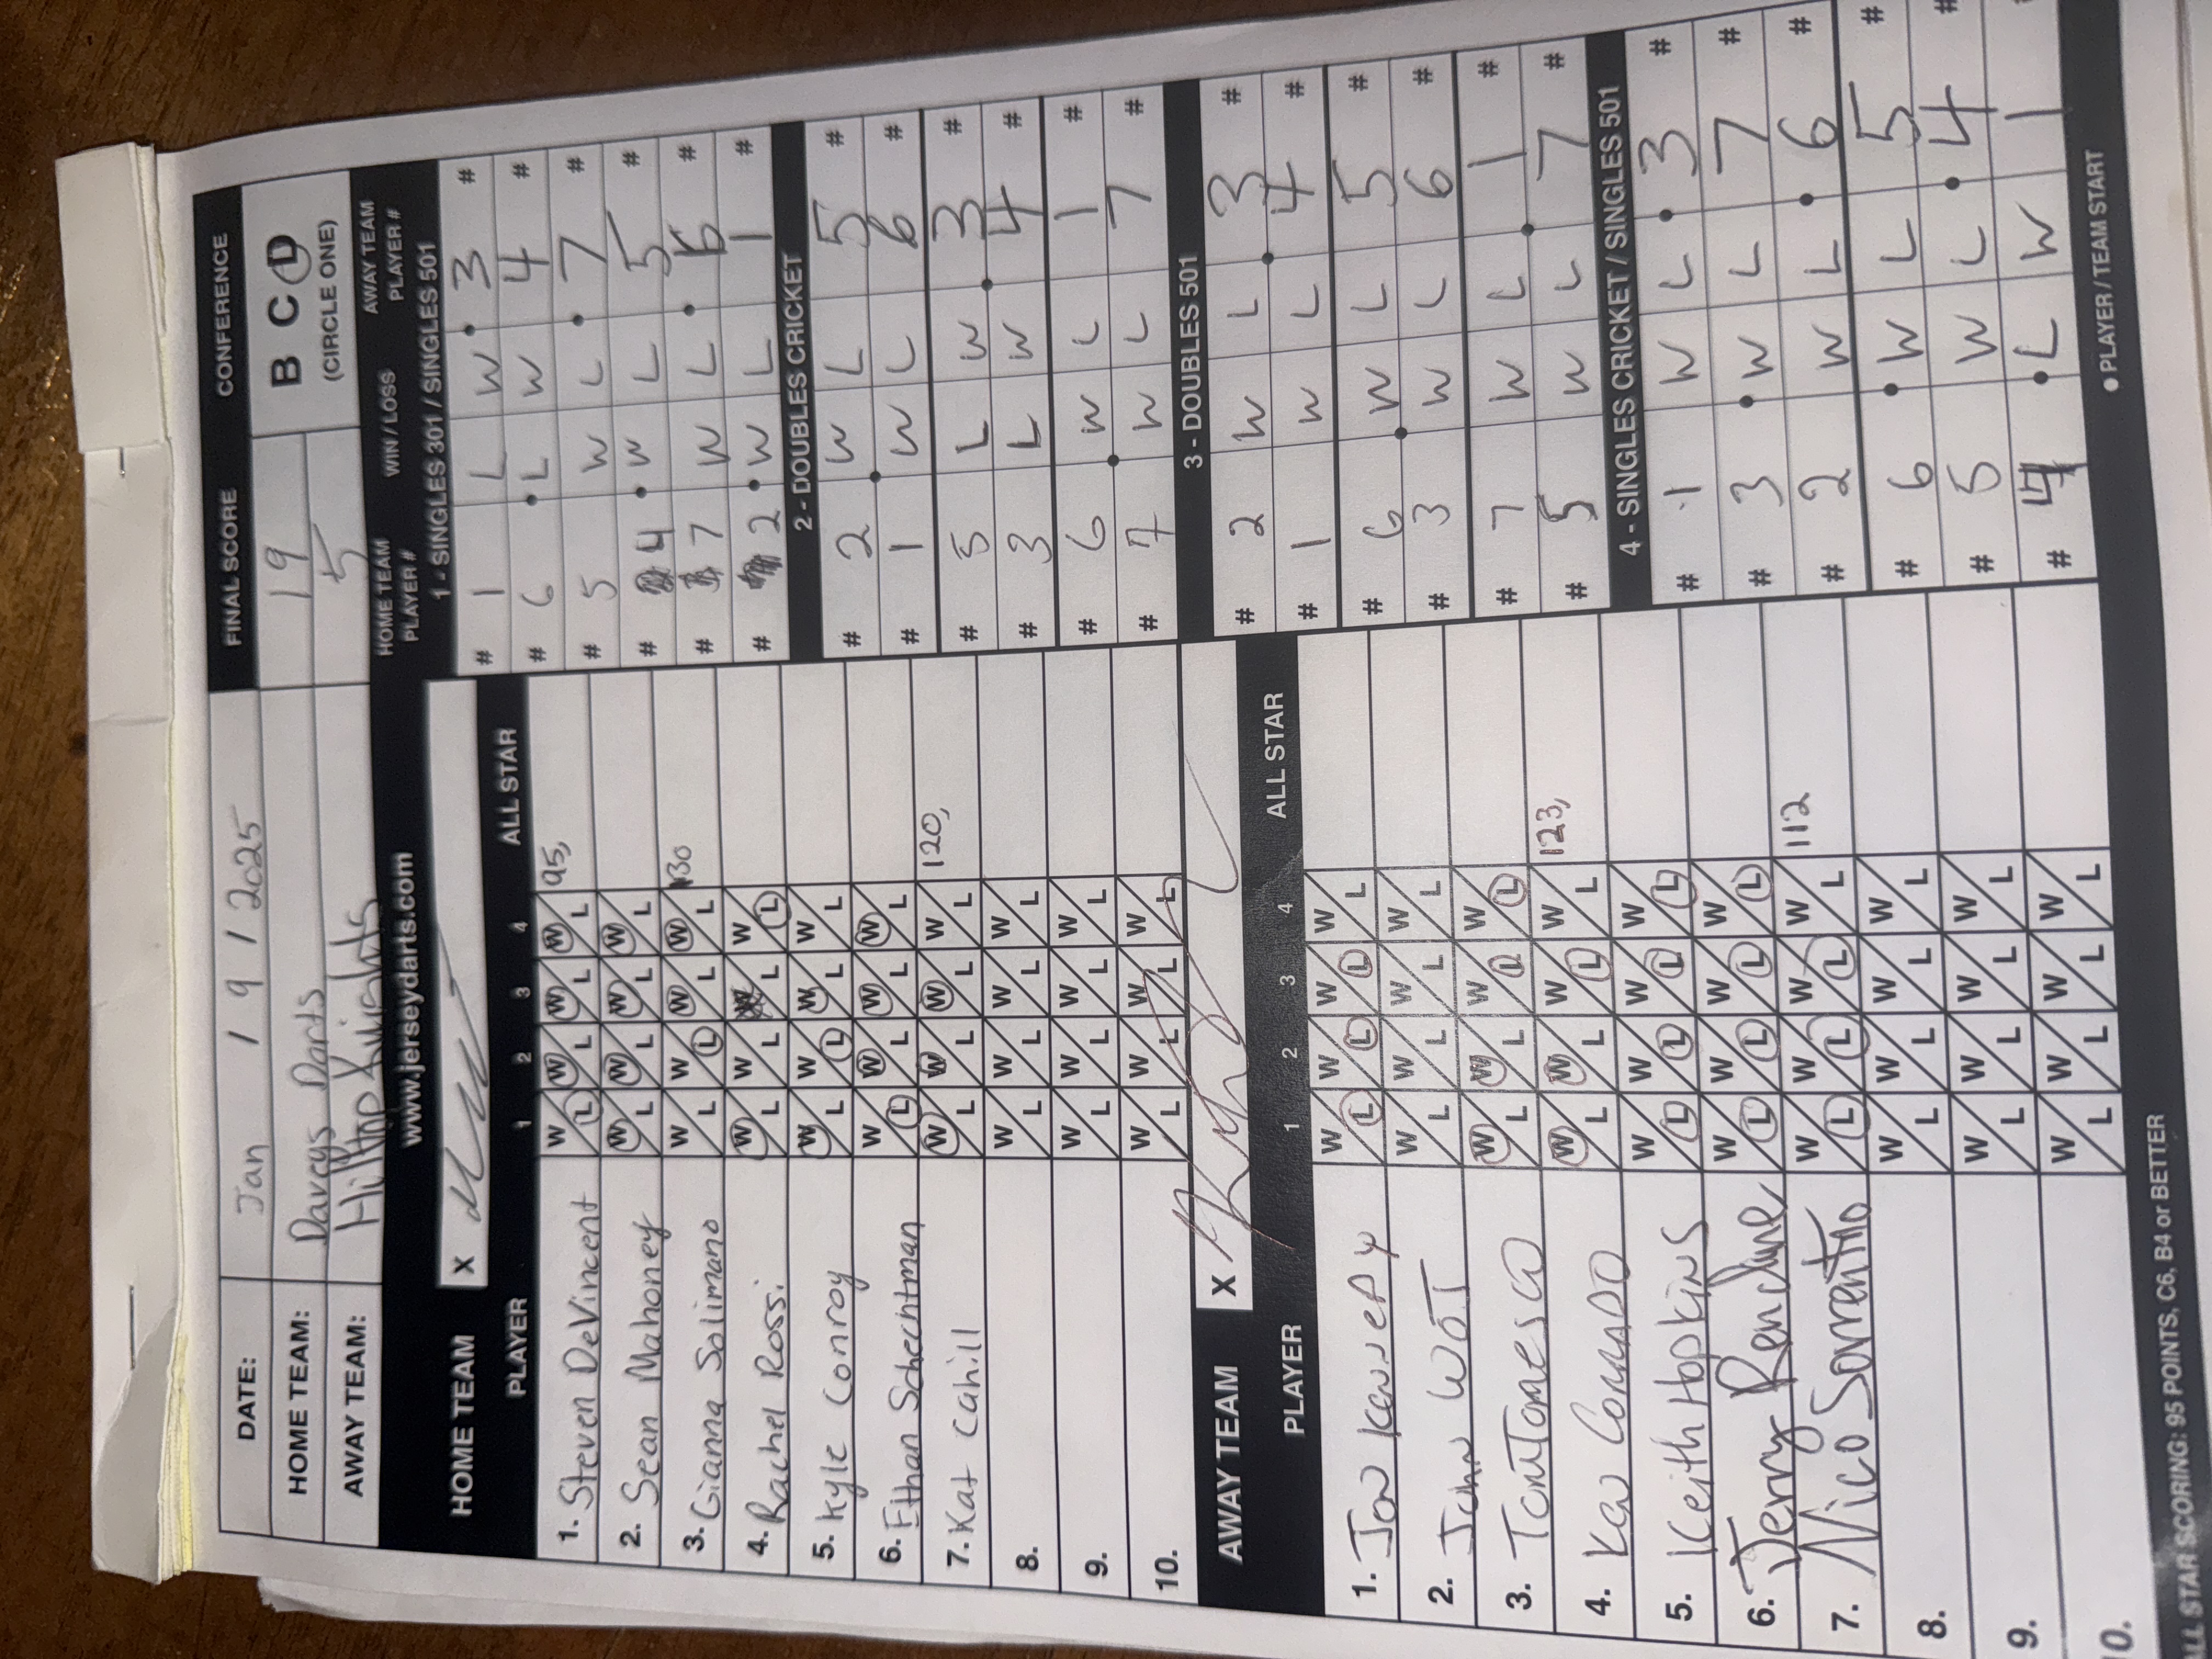 DATE: Jan / 9 / 2025
FINAL SCORE
CONFERENCE
HOME TEAM: Daveys Darts 19
AWAY TEAM: Hilltop Knights 5
B C D
(CIRCLE ONE)
www.jerseydarts.com
HOME TEAM X
PLAYER 1 2 3 4 ALL STAR
1. Steven DeVincent W/L W/L W/L W/L 95,
2. Sean Mahoney W/L W/L W/L W/L
3. Gianna Solimano W/L W/L W/L W/L 130
4. Rachel Rossi W/L W/L W/L W/L
5. Kyle Conroy W/L W/L W/L W/L
6. Ethan Schechtman W/L W/L W/L W/L
7. Kat Cahill W/L W/L W/L W/L 120,
8. W/L W/L W/L W/L
9. W/L W/L W/L W/L
10. W/L W/L W/L W/L
AWAY TEAM X
PLAYER 1 2 3 4 ALL STAR
1. Jon Kennedy W/L W/L W/L W/L
2. John W/L W/L W/L W/L
3. Tom Tomesco W/L W/L W/L W/L
4. Ken W/L W/L W/L W/L 123,
5. Keith Hopkins W/L W/L W/L W/L
6. Jerry W/L W/L W/L W/L
7. Nico Sorrentino W/L W/L W/L W/L 112
8. W/L W/L W/L W/L
9. W/L W/L W/L W/L
10. W/L W/L W/L W/L
ALL STAR SCORING: 95 POINTS, C6, B4 or BETTER
HOME TEAM PLAYER # WIN / LOSS AWAY TEAM PLAYER #
1 - SINGLES 301 / SINGLES 501
# 1 L W 3 #
# 6 L W 4 #
# 5 W L 7 #
# 4 W L 5 #
# 7 W L 6 #
# 2 W L 1 #
2 - DOUBLES CRICKET
# 2 W L 5 #
# 1 W L 6 #
# 5 L W 3 #
# 3 L W 4 #
# 6 W L 1 #
# 7 W L 7 #
3 - DOUBLES 501
# 2 W L 3 #
# 1 W L 4 #
# 6 W L 5 #
# 3 W L 6 #
# 7 W L 1 #
# 5 W L 7 #
4 - SINGLES CRICKET / SINGLES 501
# 1 W L 3 #
# 3 W L 7 #
# 2 W L 6 #
# 6 W L 5 #
# 5 W L 4 #
# 4 L W 1 #
● PLAYER / TEAM START